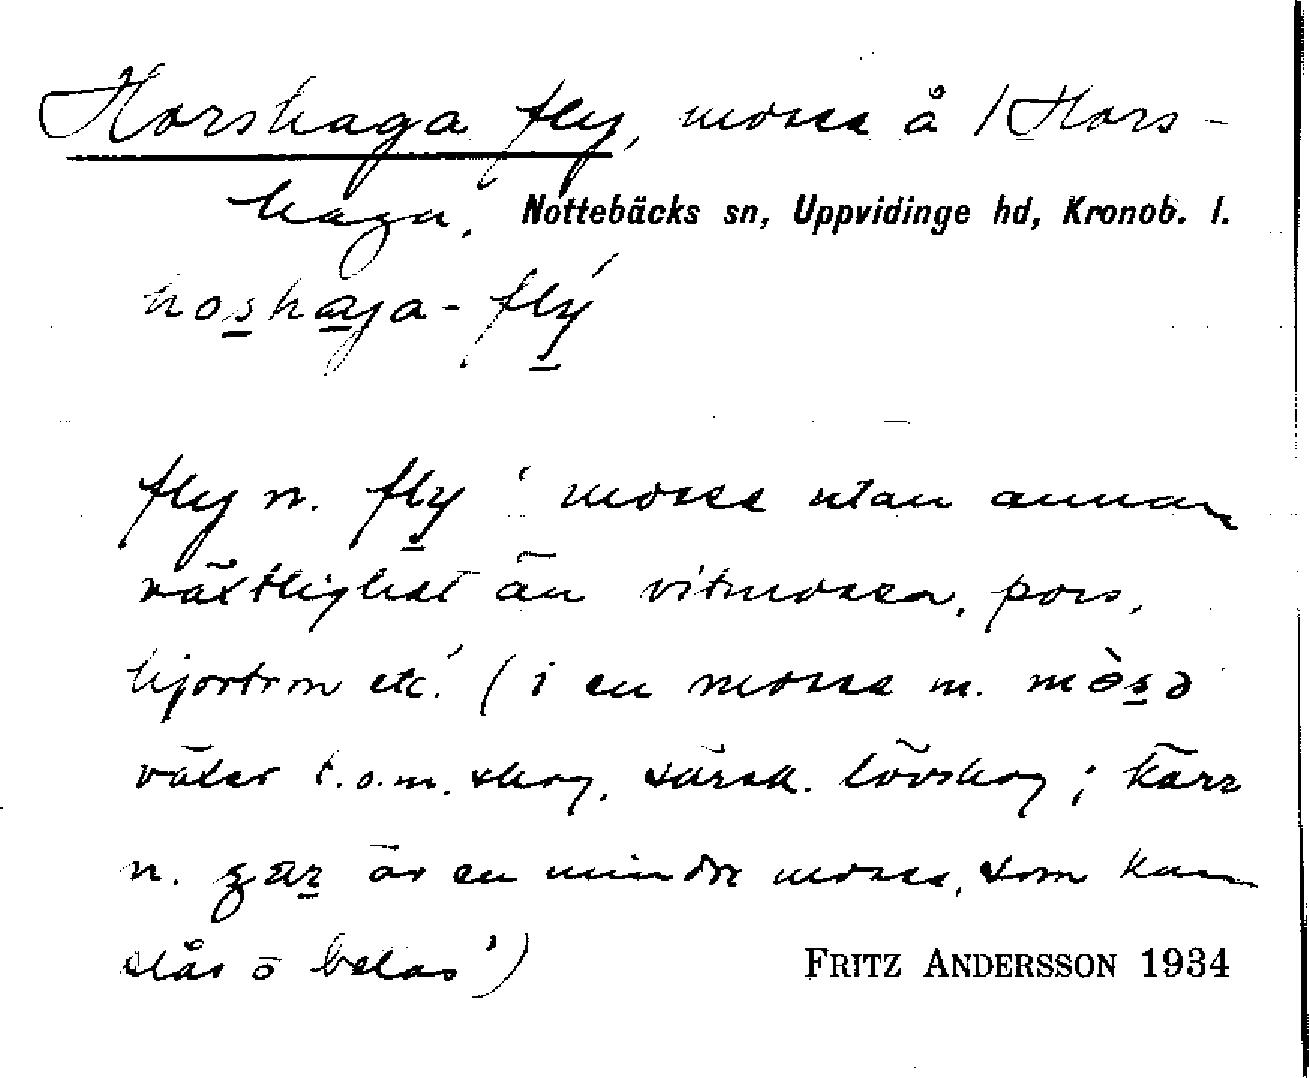 Horshaga fly, mosse å /Hors-
haga, Nottebäcks sn, Uppvidinge hd, Kronob. l.
hoshaga-flý
fly n. fly ' mosse utan annan
växtlighet än vitmossa, pors,
hjortron etc.' (i en mosse m. mòsə
växer t.o.m. skog, särsk. lövskog; kärr
n. är en mindre mosse, som kan
slås o betas')
FRITZ ANDERSSON 1934